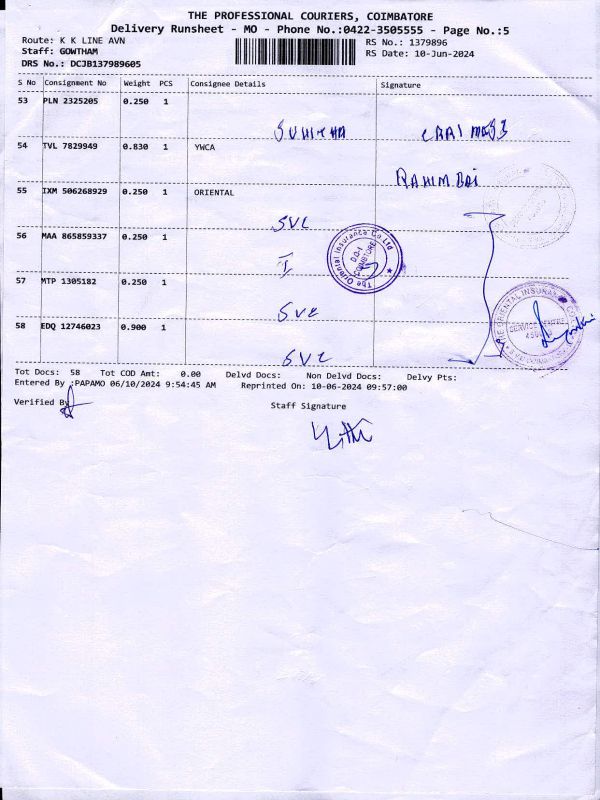 THE PROFESSIONAL COURIERS, COIMBATORE
Delivery Runsheet - MO - Phone No.:0422-3505555 - Page No.:5
Route: K K LINE AVN
RS No.: 1379896
Staff: GOWTHAM
RS Date: 10-Jun-2024
DRS No.: DCJB137989605
S No Consignment No Weight PCS Consignee Details Signature
53 PLN 2325205 0.250 1
SUHITHA
54 TVL 7829949 0.830 1 YWCA
RAHIM BAI
55 IXM 506268929 0.250 1 ORIENTAL
SVC
56 MAA 865859337 0.250 1
The Oriental Insurance Co Ltd
I
57 MTP 1305182 0.250 1
THE ORIENTAL INSURANCE CO
SERVICE CENTRE
58 EDQ 12746023 0.900 1
Tot Docs: 58 Tot COD Amt: 0.00 Delvd Docs: Non Delvd Docs: Delvy Pts:
Entered By :PAPAMO 06/10/2024 9:54:45 AM Reprinted On: 10-06-2024 09:57:00
Verified By
Staff Signature